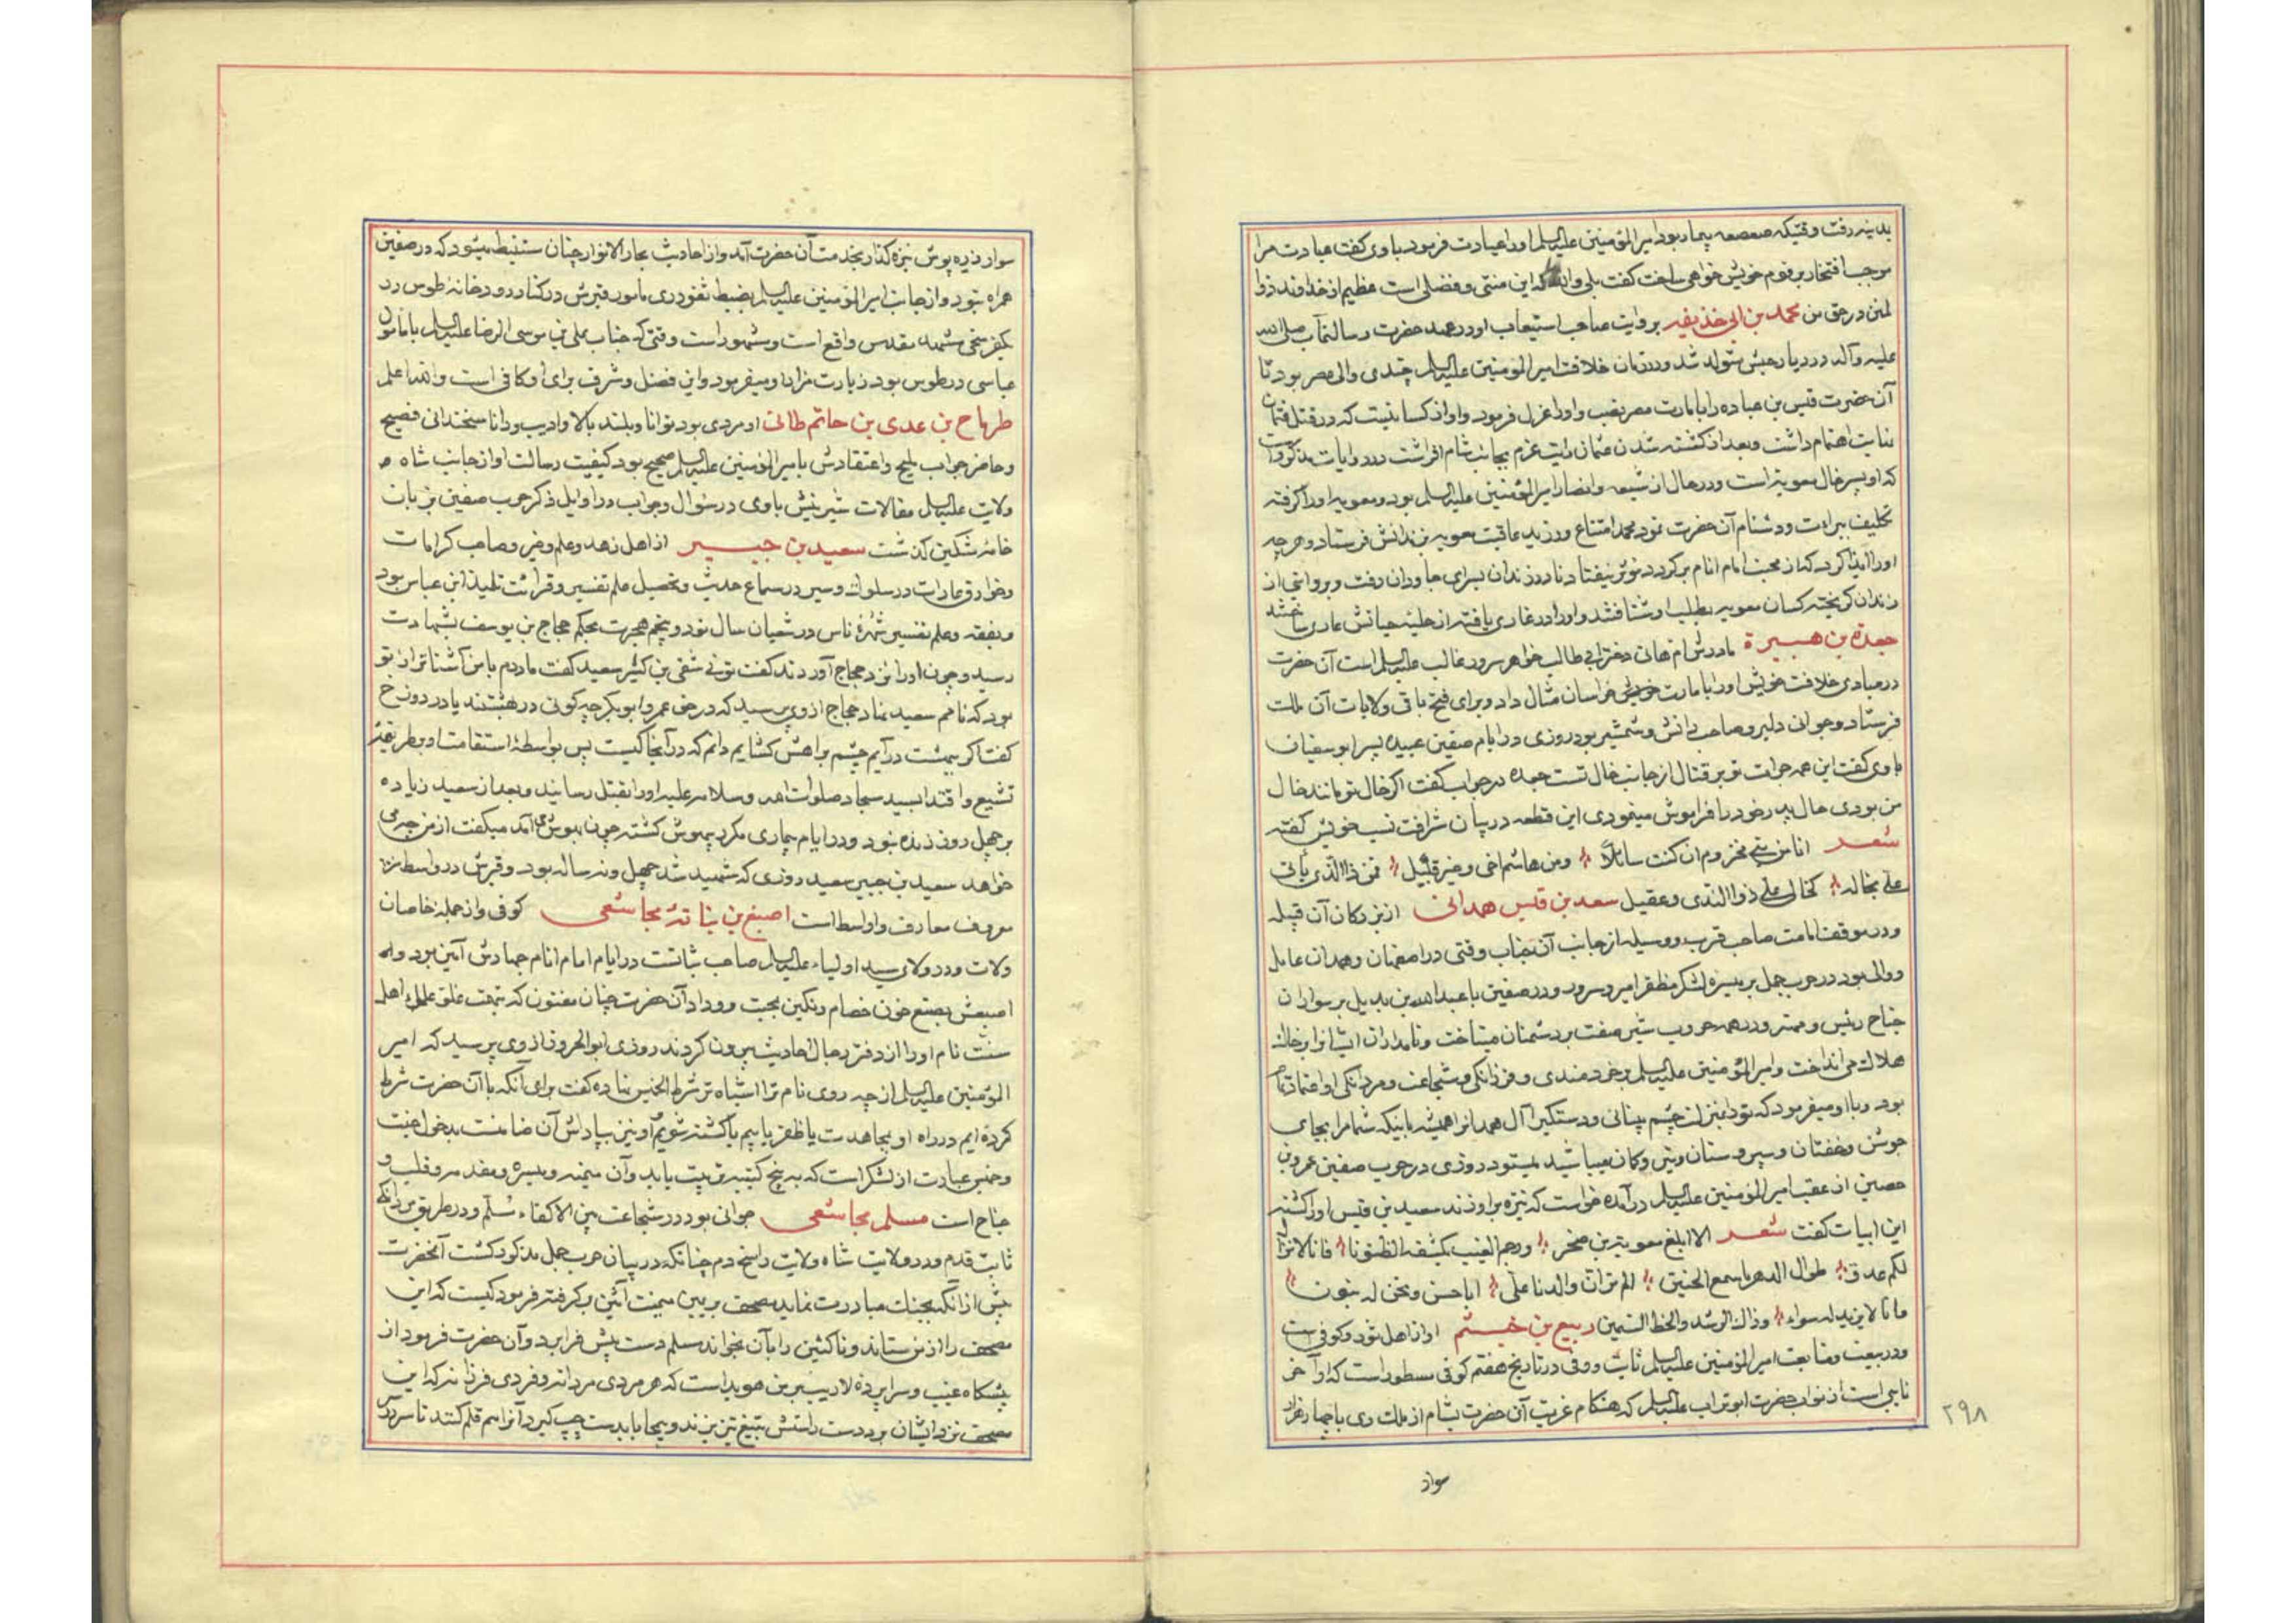 بدینه رفت وقتیکه صعصعه بیمار بود امیرالمؤمنین علیه‌السلم او را عیادت فرمود باوی کفت عیادت مرا
موجب افتخار بر قوم خویش خواهی ساخت کفت بلی والله که این منتی و فضلی است عظیم از خداوند ذوا
لمنن در حق من محمد بن ابی خذیفه بروایت صاحب استیعاب او در عهد حضرت رسالتمآب صلی الله
علیه وآله در دیار حبش متولد شد و در زمان خلافت امیرالمؤمنین علیه‌السلم چندی والی مصر بود تا
آن حضرت قیس بن عباده را بامارت مصر نصب و او را عزل فرمود و او از کسانیست که در قتل عثمان
نهایت اهتمام داشت و بعد از کشته شدن عثمان رایت عزم بجانب شام افراشت در روایات مذکور است
که او پسر خال معویه است و در حال از شیعه و انصار امیرالمؤمنین علیه‌السلم بود و معویه او را کرفته
تکلیف ببرائت و دشنام آن حضرت نمود محمد امتناع ورزید عاقبت معویه بزندانش فرستاد و هر چه
او را ایذا کرد که از محبت امام انام برکردد مؤثر نیفتاد تا در زندان بسرای جاودان رفت و بروایتی از
زندان کریخته کسان معویه بطلب او شتافتند و او را در غاری یافته از حلیه حیاتش عاری ساختند
جعدة بن هبیرة مادرش ام هانی دختر ابی طالب خواهر سرور غالب علیه‌السلم است آن حضرت
در مبادی خلافت خویش او را بامارت خراسان مثال داد و برای فتح باقی ولایات آن ملک
فرستاد و جوانی دلیر و صاحب دانش و شمشیر بود روزی در ایام صفین عبیده پسر ابوسفیان
باوی کفت این همه جرات تو بر قتال از جانب خال تست جعده در جواب کفت اکر خال تو مانند خال
من بودی حال پدر خود را فراموش مینمودی این قطعه در بیان شرافت نسب خویش کفته
شعر انا من بنی مخزوم ان کنت سائلا ومن هاشم اخی وخیر قبیل فمن ذا الذی یأتی
علی بخاله کخالی علی ذو الندی وعقیل سعد بن قیس همدانی از بزرکان آن قبیله
و در موقف امامت صاحب قرب و وسیله از جانب آن جناب وقتی در اصفهان و همدان عامل
و والی بود در حرب جمل بر میسره لشکر مظفر امیر و سرور و در صفین با عبدالله بن بدیل بر سواران
جناح رئیس و مهتر و در همه حروب شیر صفت بر دشمنان میتاخت و نامداران ایشانرا بر خاک
هلاک می انداخت و امیرالمؤمنین علیه‌السلم بر خردمندی و فرزانکی و شجاعت و مردانکی او اعتماد تمام
بود و با او میفرمود که تو بمنزلت چشم بینائی و دستکیر آل همدانرا همیشه بانیکه شما مرا بجای
جوشن و خفتان و سپر و سنان و تیر و کمان میباشید میستود روزی در حرب صفین عمرو بن
حصین از عقب امیرالمؤمنین علیه‌السلم در آمده خواست که نیزه بر او زند سعید بن قیس او را کشته
این ابیات کفت شعر الا ابلغ معویة بن صخر ورجم الغیب یکشفه الظنونا فانا لا نزال
لکم عدو طوال الدهر ما سمع الحنین الم تر ان والدنا علی ابا حسن ونحن له بنون
وانا لا نرید له سواه وذاک الرشد والحظ السمین ربیع بن خیثم او از اهل ثور و کوفی است
و در بیعت و متابعت امیرالمؤمنین علیه‌السلم ثابت و وفی در تاریخ هفتم کوفی مسطور است که او آخر
نایبی است از نواب حضرت ابوتراب علیه‌السلم که هنکام عزیمت آن حضرت بشام از ملک ری با چهار هزار
۲۹۸
سوار
سوار زره پوش نیزه کذار بخدمت آن حضرت آمد و از احادیث بحارالانوار چنان مستنبط میشود که در صفین
همراه نبود و از جانب امیرالمؤمنین علیه‌السلم بضبط ثغور ری مامور قبرش در کنار رودخانه طوس در
یکفرسخی مشهد مقدس واقع است و مشهور است وقتی که جناب علی بن موسی الرضا علیه‌السلم با مامون
عباسی در طوس بود زیارت مزار او میفرمود و این فضل و شرف برای او کافی است والله اعلم
طرماح بن عدی بن حاتم طائی او مردی بود توانا و بلند بالا و ادیب و دانا سخندانی فصیح
و حاضر جواب ملیح و اعتقادش بامیرالمؤمنین علیه‌السلم صحیح بود کیفیت رسالت او از جانب شاه
ولایت علیه‌السلم مقالات شیرینش باوی در سؤال و جواب در اوایل ذکر حرب صفین بزبان
خامه مشکین کذشت سعید بن جبیر از اهل زهد و علم و خیر و صاحب کرامات
و خوارق عادات در سلوک و سیر در سماع حدیث و تحصیل علم تفسیر و قرائت تلمیذ ابن عباس بود
و بفقه و علم تفسیر شهرۀ ناس در شعبان سال نود و پنجم هجرت بحکم حجاج بن یوسف بشهادت
رسید و چون او را نزد حجاج آوردند کفت توئی شقی بن کثیر سعید کفت مادرم با من آشناتر از تو
بود که نامم سعید نهاد حجاج از وی پرسید که در حق عمر و ابوبکر چه کوئی در بهشتند یا در دوزخ
کفت اکر ببهشت در آیم چشم بر اهلش کشایم دانم که در آنجا کیست پس بواسطۀ استقامت او بطریقۀ
تشیع و اقتدا بسید سجاد صلوات الله وسلامه علیه او را بقتل رسانید و بعد از سعید زیاده
بر چهل روز زنده نبود و در ایام بیماری مکرر بیهوش کشته چون بهوش می‌آمد میکفت از من چه می
خواهد سعید بن جبیر سعید روزی که شهید شد چهل و نه ساله بود و قبرش در واسط نزد
معروف معارف و اواسط است اصبغ بن نباتۀ مجاشعی کوفی و از جمله خاصان
ولات و در ولای سید اولیاء علیه‌السلم صاحب ثبات در ایام امام انام جهادش آئین بود و
اصبعش بصبغ خون خصام رنکین بجبت و وداد آن حضرت چنان مفتون که بتهمت غلو علمای اهل
سنت نام او را از دفتر رجال احادیث بیرون کردند روزی ابوالحروف از وی پرسید که امیر
المؤمنین علیه‌السلم از چه روی نام ترا اشباه تر شرط الخمیس نهاده کفت برای آنکه با آن حضرت شرط
کرده ایم در راه او بمجاهدت یا ظفر یابیم یا کشته شویم او نیز بپاداش آن ضامنست بدخول جنت
و خمیس عبارت از لشکر است که به پنج کتیبه ترتیب یابد و آن میمنه و میسره و مقدمه و قلب و
جناح است مسلم مجاشعی جوانی بود در شجاعت بین الاکفاء مسلم و در طریق مردانکی
ثابت قدم و در ولایت شاه ولایت راسخ دم چنانکه در بیان حرب جمل مذکور کشت آنحضرت
پیش از آنکه بجنک مبادرت نماید مصحف بر یمین میمنت آئین برکرفته فرمود کیست که این
مصحف را از من ستاند و ناکثین را بآن بخواند مسلم دست پیش فرا برد و آن حضرت فرمود از
پیشکاه غیب و سراپردۀ لاریب بر من هویداست که هر مردی مردانه و فردی فرزانه که این
مصحف نزد ایشان برد دست راستش بتیغ تیز بزنند و بجا باید دست چپ کیرد آنرا هم قلم کنند تا سر در